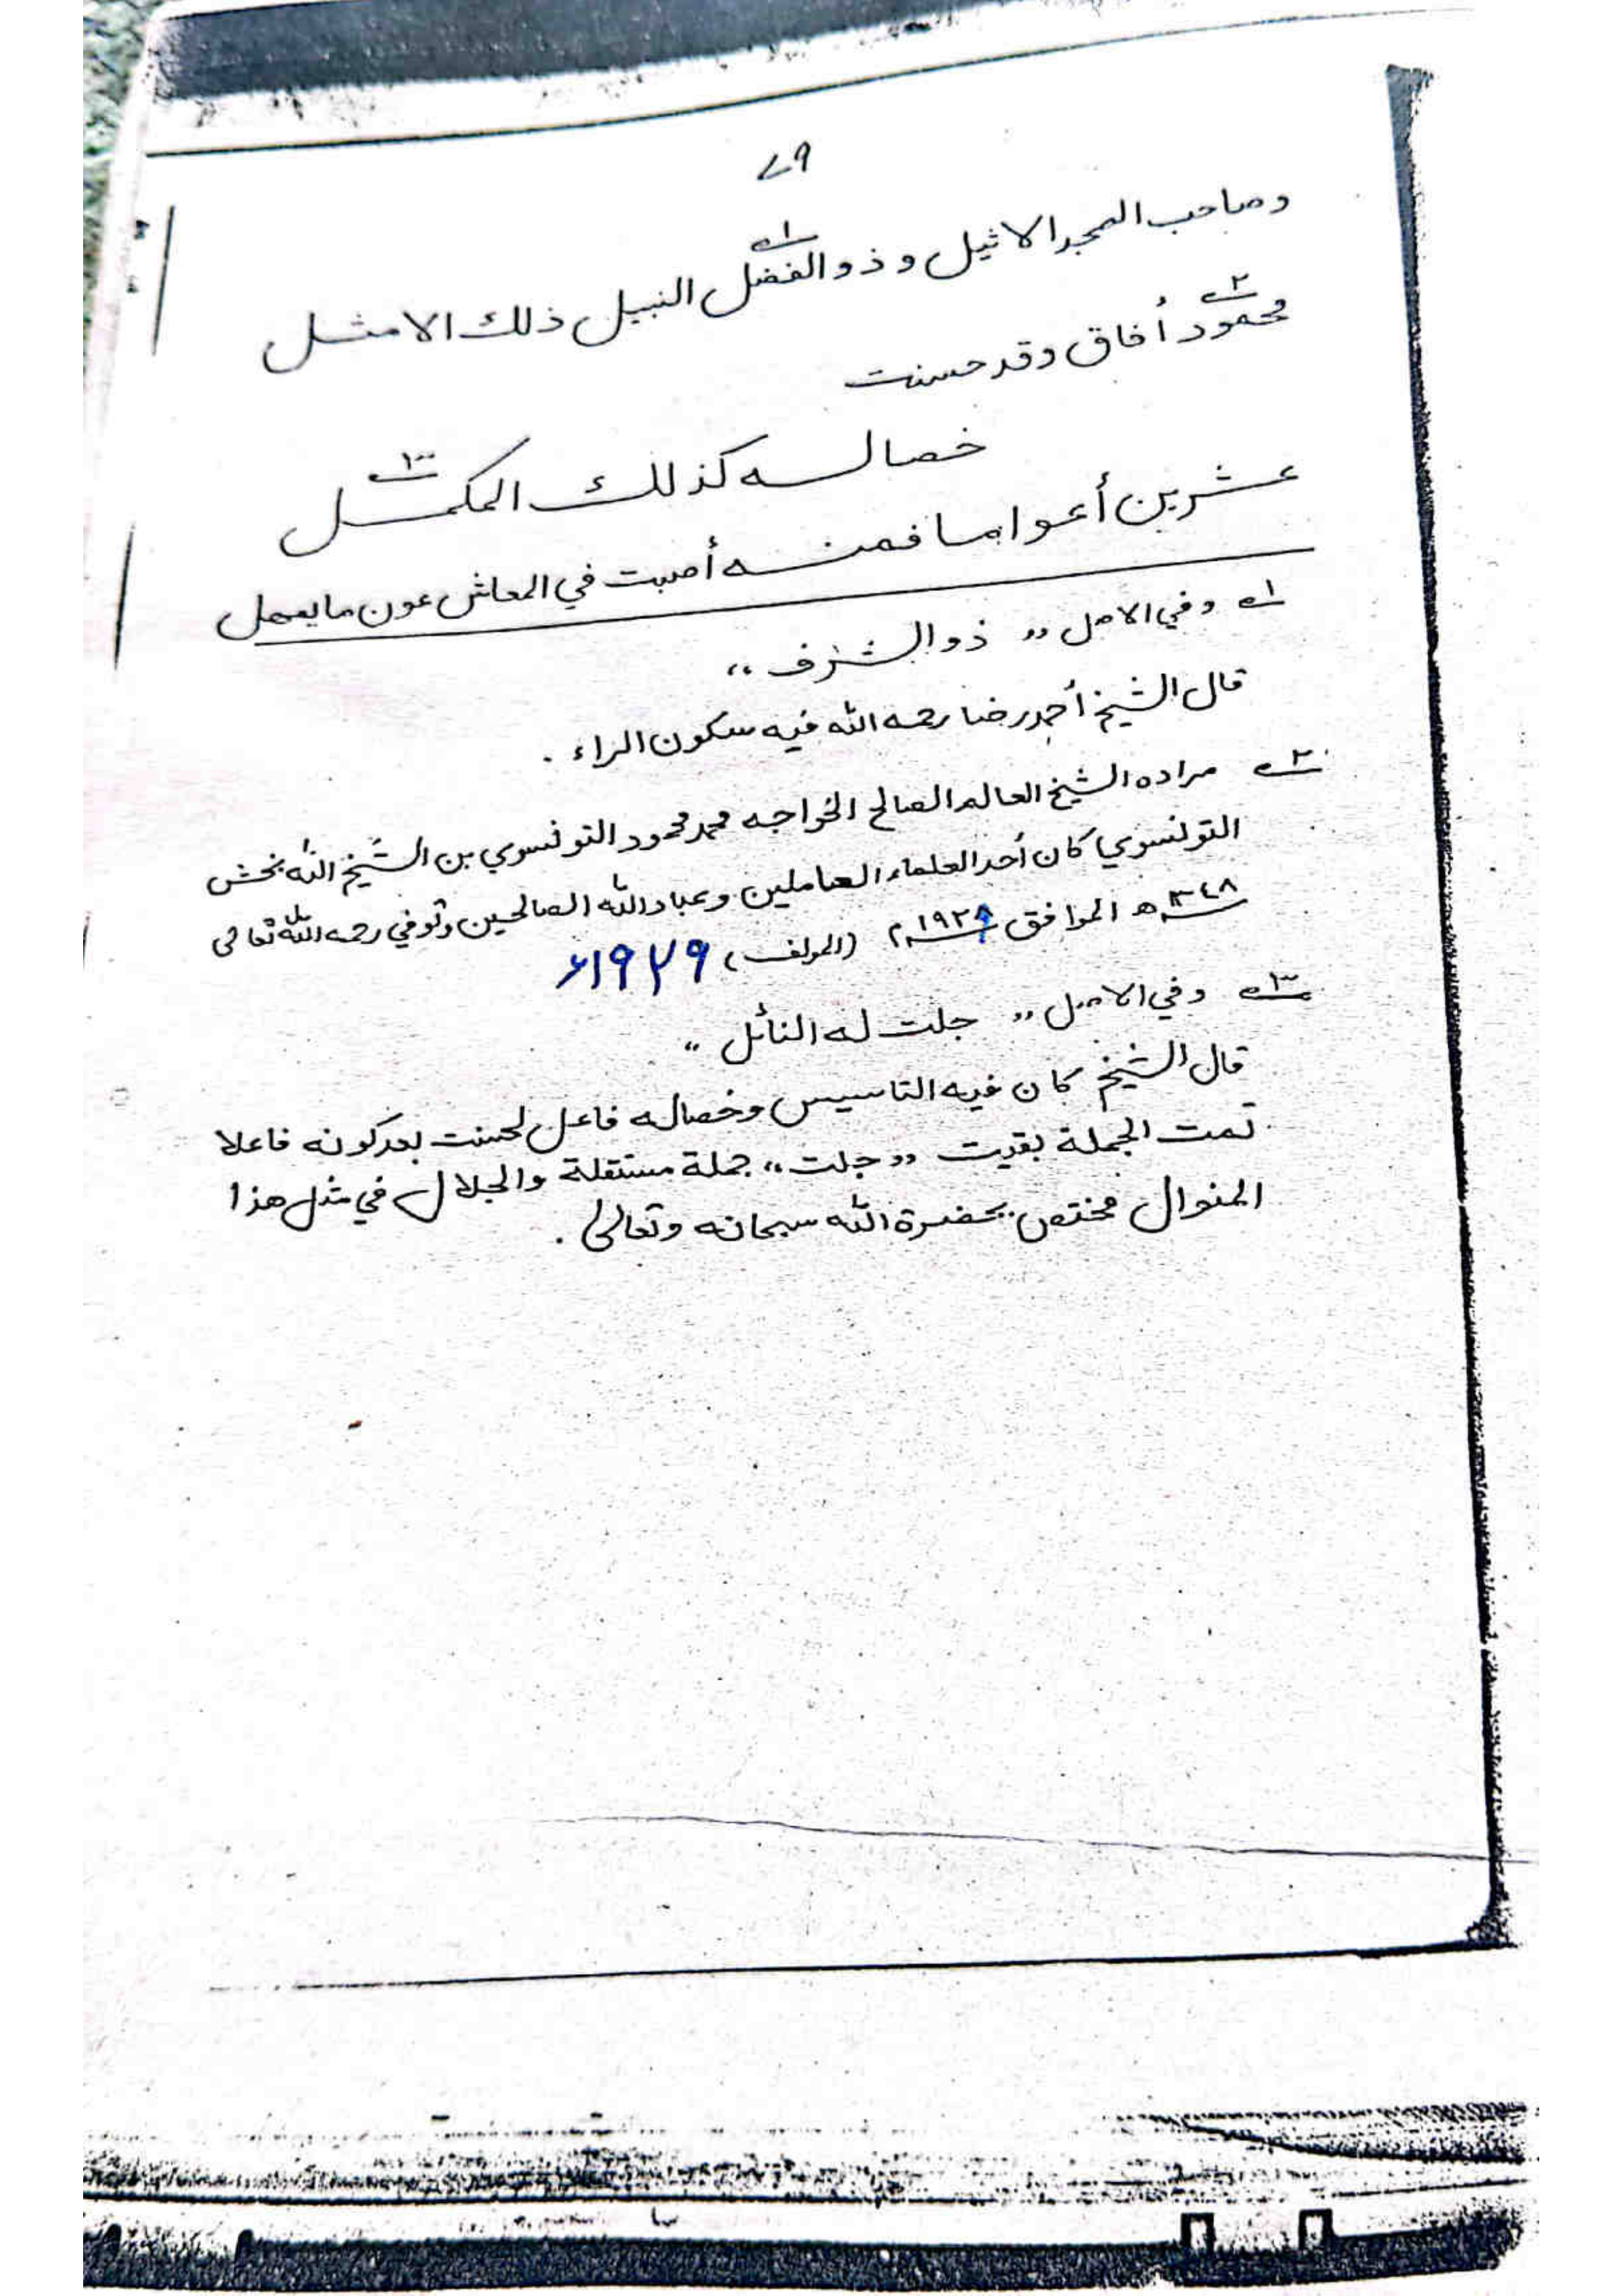 ٧٩
وصاحب المجد الاثيل وذو الفضل١ النبيل ذلك الامثل
محمود٢ أفاق وقد حسنت
خصاله كذلك المكمل٣
عشرين أعواما فمنه أصبت في المعاش عون ما يعمل
١ وفي الاصل ,, ذو الشرف ،،
قال الشيخ أحمد رضا رحمه الله فيه سكون الراء .
٢ مراده الشيخ العالم الصالح الخواجه محمد محمود التونسوي بن الشيخ الله بخش
التونسوي كان أحد العلماء العاملين وعباد الله الصالحين وتوفي رحمه الله تعالى
١٣٤٨ھ الموافق ١٩٢٩م (المولف) ١٩٢٩ء
٣ وفي الاصل ,, جلت له النائل ،،
قال الشيخ كان فيه التاسيس وخصاله فاعل لحسنت بعد كونه فاعلا
تمت الجملة بقيت ,, جلت ،، جملة مستقلة والجلال في مثل هذا
المنوال مختص بحضرة الله سبحانه وتعالى .